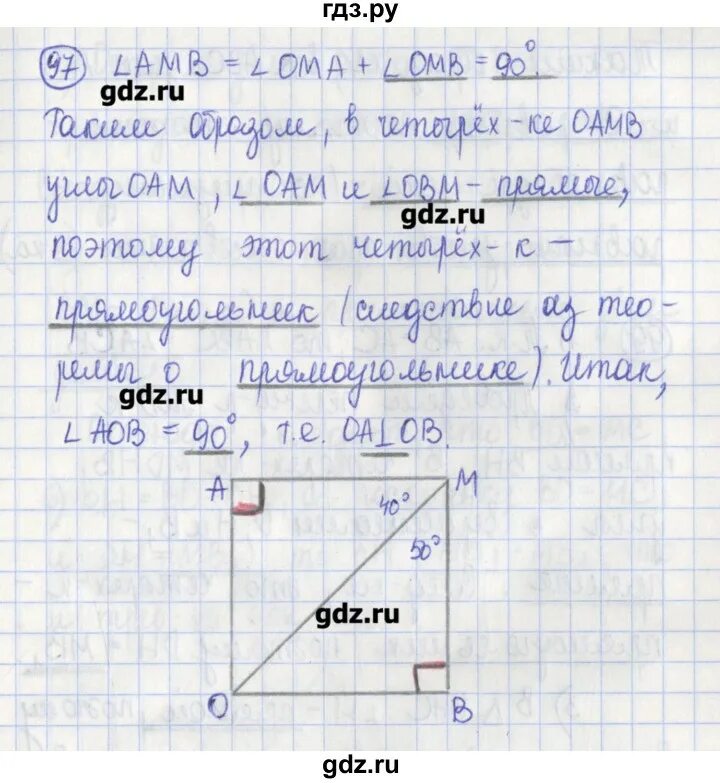 гдз.ру
97 ∠AMB = ∠OMA + ∠OMB = 90°.
gdz.ru
Таким образом, в четырёх-ке OAMB
углы OAM, ∠OAM и ∠OBM - прямые,
gdz.ru
поэтому этот четырёх-к —
прямоугольник (следствие из тео-
ремы о прямоугольнике). Итак,
gdz.ru
∠AOB = 90°, т.е. OA⊥OB.
A M
40°
50°
gdz.ru
O B